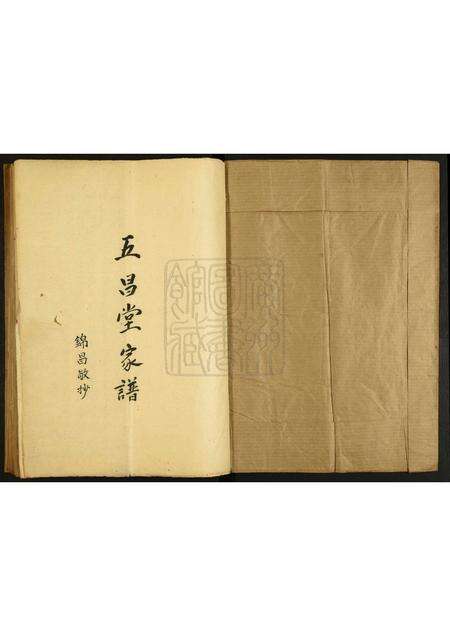 五昌堂家譜
錦昌敬抄